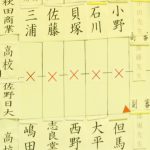 小野
石川
貝塚
佐藤
三浦
秋田商業
高校
佐野日大
高校
但馬
大平
西
志良堂
嶋田